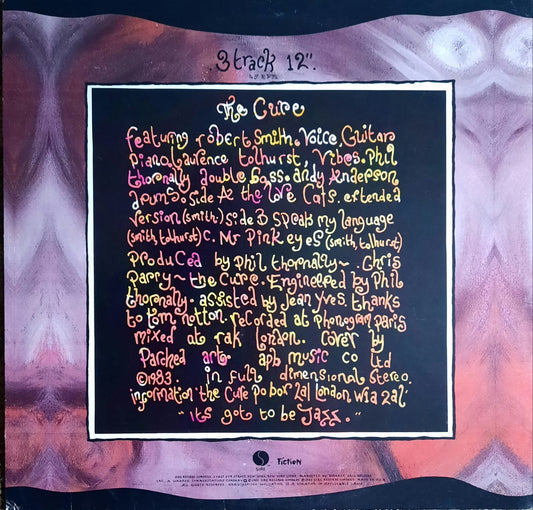 3 track 12".
45 RPM
The Cure
featuring robert Smith. Voice, Guitar
piano, Laurence tolhurst, Vibes. Phil
thornally double bass. andy Anderson
drums. side A the love Cats. extended
version (smith.) side B speak my language
(smith, tolhurst) C. Mr Pink eyes (smith, tolhurst)
Produced by Phil thornally ~ Chris
Parry ~ the Cure. Engineered by Phil
thornally. assisted by Jean Yves. thanks
to tom notton. recorded at phonogram paris
mixed at rak london. cover by
Parched art. apb music co ltd
©1983. in full dimensional stereo.
information 'the Cure po box 2al London W1a 2al'
"its got to be Jazz."
SIRE
Fiction